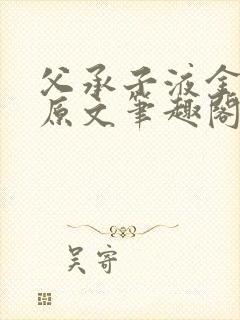 父承子液全
原文笔趣阁
吴寄